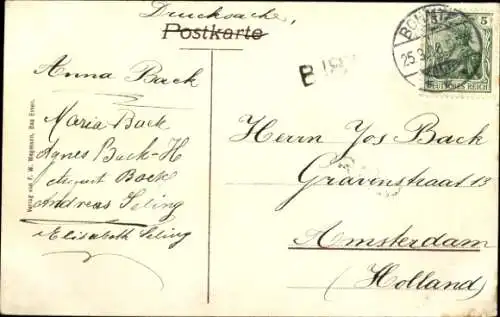 Drucksache,
Postkarte
Anna Back
Maria Back
Agnes Back-H
August Back
Andreas Seling
Elisabeth Seling
Verlag von F. W. Wiegmann, Bad Essen.
B
5
25.3
DEUTSCHES REICH
Herrn Jos Back
Gravenstraat 13
Amsterdam
(Holland)